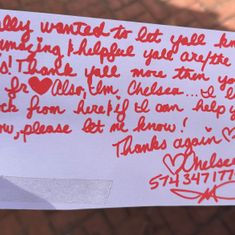 ally wanted to let yall kn
amazing & helpful yall are/the
s! Thank yall more then yo
fr ♥ Also, Um, Chelsea... I l
ock from here & if I can help y
ow, please let me know!
Thanks again ♡
♡ Chelsea
574347177